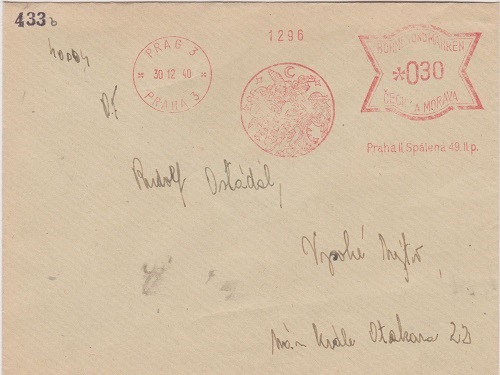 433b
1296
PRAG 3
30.12.40
PRAHA 3
BÖHMEN UND MÄHREN
*030
ČECHY A MORAVA
Praha II. Spálená 49. II p.
Rudolf Ošťádal,
Vysoké Mýto,
nám Krále Otakara 22